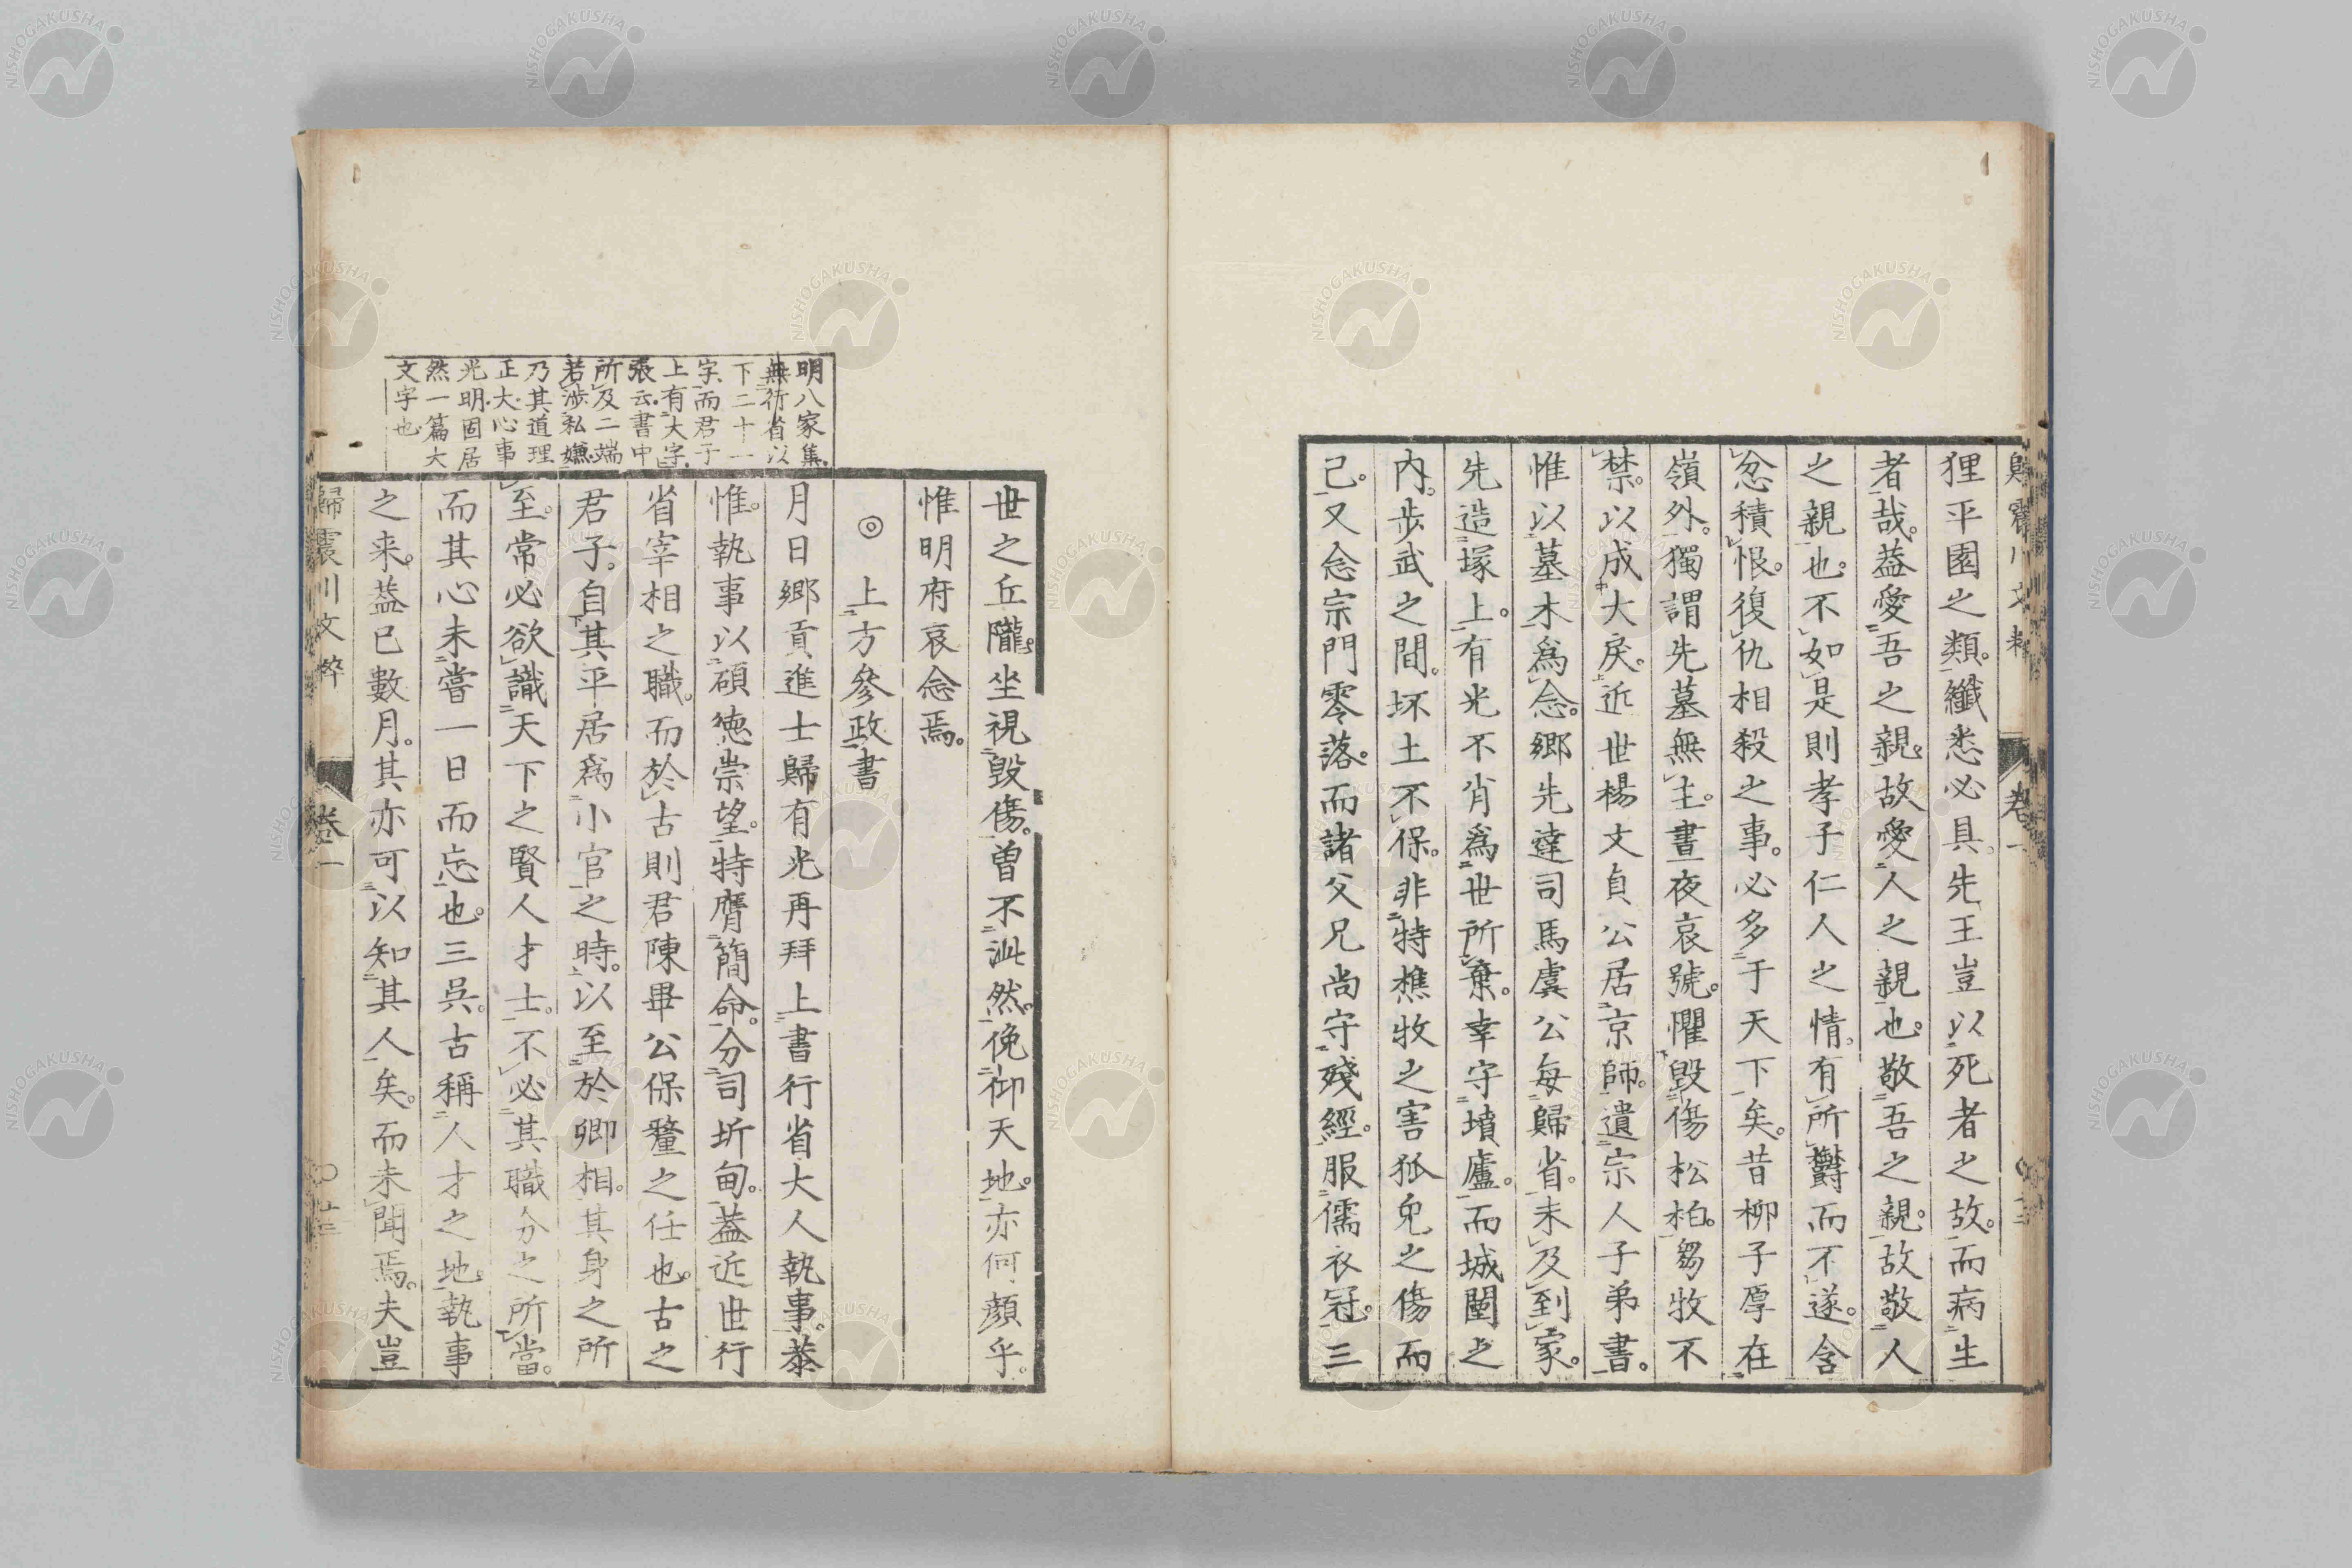 狸平園之類。纖悉必具。先王豈以死者之故。而病生
者哉。葢愛吾之親。故愛人之親也。敬吾之親。故敬人
之親也。不如是則孝子仁人之情。有所欝而不遂。含
忿積恨。復仇相殺之事。必多于天下矣。昔柳子厚在
嶺外。獨謂先墓無主。晝夜哀號。懼毀傷松柏。芻牧不
禁。以成大戾。近世楊文貞公居京師。遺宗人子弟書。
惟以墓木爲念。鄉先達司馬虞公每歸省。未及到家。
先造塚上。有光不肖爲世所棄。幸守墳廬。而城闉之
內。步武之間。坏土不保。非特樵牧之害狐兔之傷而
己。又念宗門零落。而諸父兄尚守殘經。服儒衣冠。三
世之丘隴。坐視毀傷。曾不泚然。俛仰天地。亦何顏乎。
惟明府哀念焉。
◎上方參政書
月日鄉貢進士歸有光再拜上書行省大人執事。恭
惟。執事以碩德崇望。特膺簡命。分司圻甸。葢近世行
省宰相之職。而於古則君陳畢公保釐之任也。古之
君子。自其平居爲小官之時。以至於卿相。其身之所
至。常必欲識天下之賢人才士。不必其職分之所當。
而其心未嘗一日而忘也。三吳。古稱人才之地。執事
之来。葢已數月。其亦可以知其人矣。而未聞焉。夫豈
明八家集。
無行省以
下二十一
字。而君子
上有大字。
張云。書中
所及二端
若涉私嫌。
乃其道理
正大。心事
光明。固居
然一篇大
文字也。
歸震川文粹
卷一